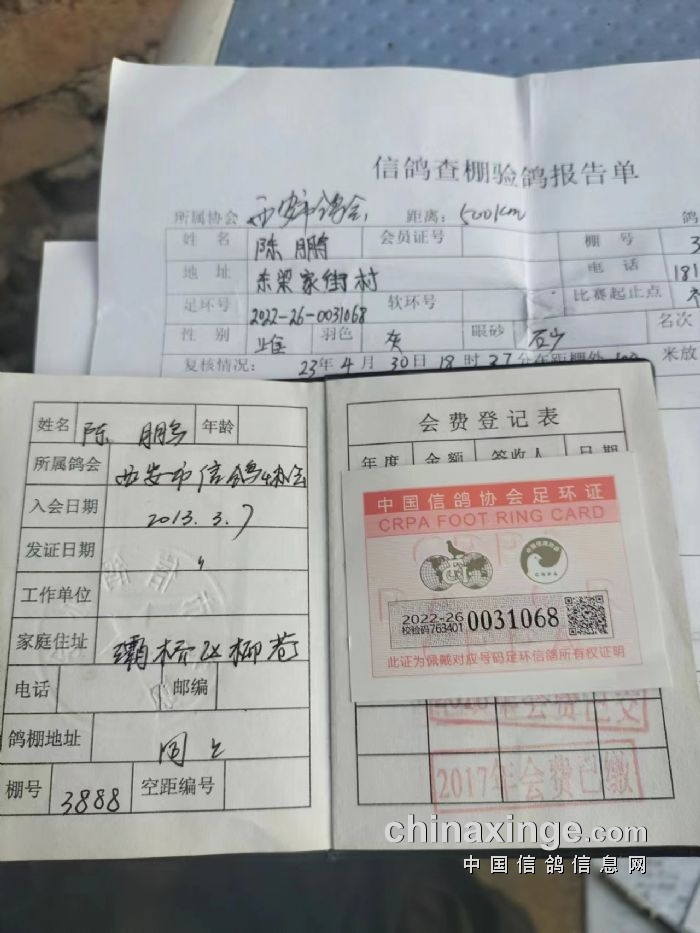 信鸽查棚验鸽报告单
所属协会 西安市鸽会 距离:500km 鸽
姓 名 陈鹏 会员证号 棚 号 3
地 址 东梁家街村 电 话 181
足环号 2022-26-0031068 软环号 比赛起止点
性 别 雄 羽色 灰 眼砂 石少 名次
复核情况: 23年4月30日18时27分在距棚处 米放
姓名 陈鹏 年龄
所属鸽会 西安市信鸽协会
入会日期 2013.3.7
发证日期 〃
工作单位
家庭住址 灞桥区柳巷
电话 邮编
鸽棚地址 同上
棚号 3888 空距编号
会费登记表
年度 金额 签收人 日期
中国信鸽协会足环证
CRPA FOOT RING CARD
2022-26 0031068
校验码763401
此证为佩戴对应号码足环信鸽所有权证明
年会费已交
2017年会费已缴
chinaxinge.com
中国信鸽信息网